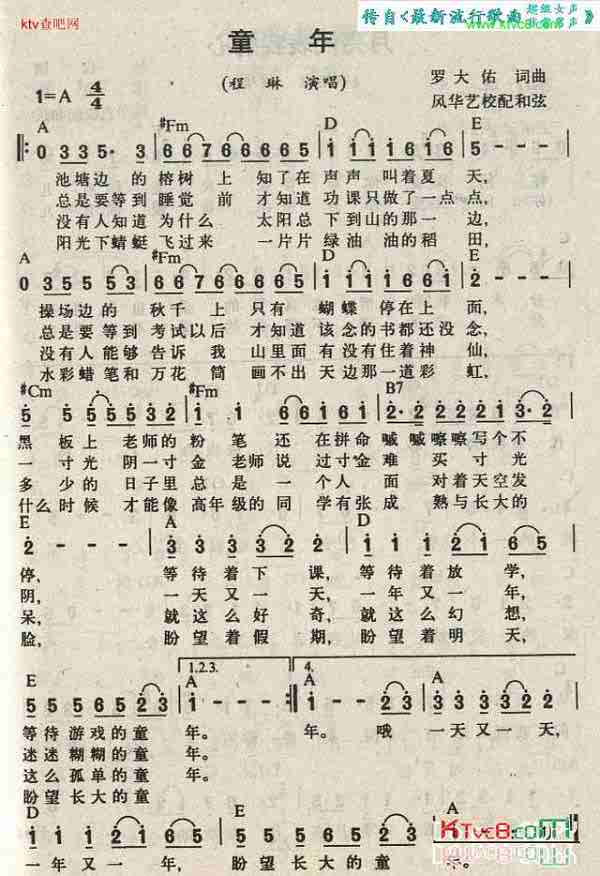 ktv查吧网
传自《最新流行歌曲 超级女声 》
www.ktvc8.com
童 年
(程 琳 演唱)
1=A 4/4
罗大佑 词曲
风华艺校配和弦
A #Fm D E
0 3 3 5· 3 | 6 6 7 6 6 6 6 5 | 1 1 1 1 6 1 6 | 5 - - - |
池塘边 的 榕树 上 知了在 声声 叫着夏 天,
总是要等到 睡觉 前 才知道 功课只做了一点点,
没有人知道 为什么 太阳总 下到山的那一 边,
阳光下蜻蜓 飞过来 一片片 绿油 油的稻 田,
A #Fm D E
0 3 5 5 3 5 | 6 6 7 6 6 6 6 5 | 1 1 1 1 6 1 | 2 - - - |
操场边的 秋千 上 只有 蝴蝶 停在上 面,
总是要等到 考试以后 才知道 该念的书都还没 念,
没有人能够 告诉 我 山里面 有没有住着神 仙,
水彩蜡笔和 万花 筒 画不出 天边那一道彩 虹,
#Cm #Fm B7
5 5 5 5 5 3 2 | 1 1 6 6 1 6 1 | 2· 2 2 2 2 1 3· 2 |
黑 板上 老师的 粉 笔 还 在拼命 喊喊嚓嚓写个不
一 寸光 阴一寸 金 老师 说 过寸金 难 买 寸光
多 少的 日子里 总 是 一 个人 面 对着天空发
什么时 候 才能像 高年 级的 同 学有张 成 熟与长大的
E A D
2 - - - | 3 3 3 3 3 2 3 | 1 1 1 2 1 6 5 |
停, 等待着下 课, 等待着放 学,
阴, 一天又一 天, 一年又一 年,
呆, 就这么好 奇, 就这么幻 想,
脸, 盼望着假 期, 盼望着明 天,
E 1.2.3. A 4. A A
5 5 5 6 5 2 3 | 1 - - - :‖ 1 - 0 2 3 | 3 3 3 3 2 3 |
等待游戏的童 年。 年。 哦 一天又一 天,
迷迷糊糊的童 年。
这么孤单的童 年。
盼望长大的童
D E A
1 1 1 2 1 6 5 | 5 5 5 6 5 2 3 |
一年又一 年, 盼望长大的童 年。
KTvc8.com